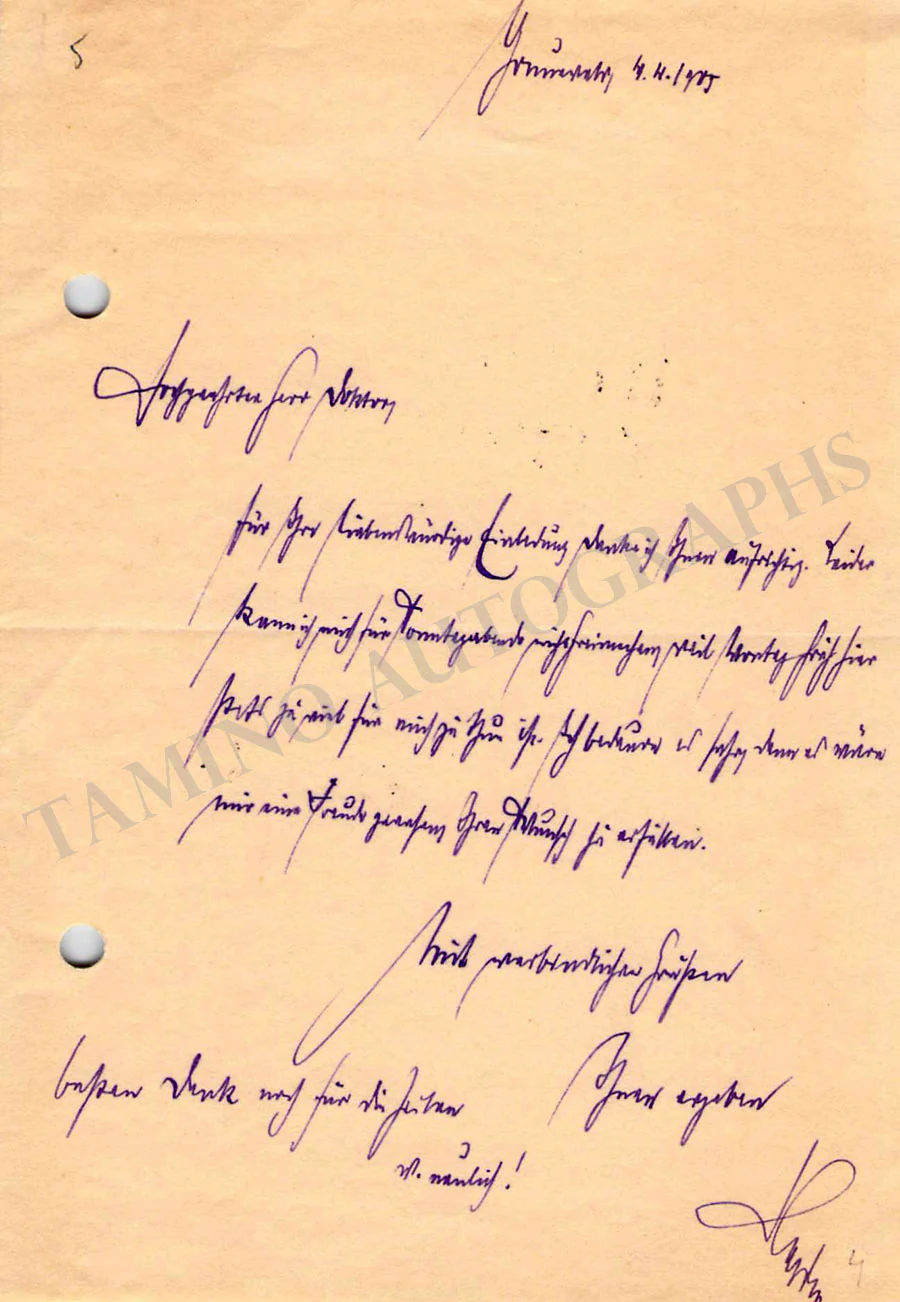 5
4.4./905
Hochgeehrter Herr Doktor,
für Ihre liebenswürdige Einladung danke ich Ihnen aufrichtig. Leider
kann ich mich für Sonntagabend nicht freimachen, weil Montag früh hier
stets zu viel für mich zu thun ist. Ich bedaure es sehr, denn es wäre
mir eine Freude gewesen, Ihren Wunsch zu erfüllen.
Mit verbindlichen Grüßen
Ihnen ergeben
besten Dank noch für die
v. neulich!
4
TAMINO AUTOGRAPHS